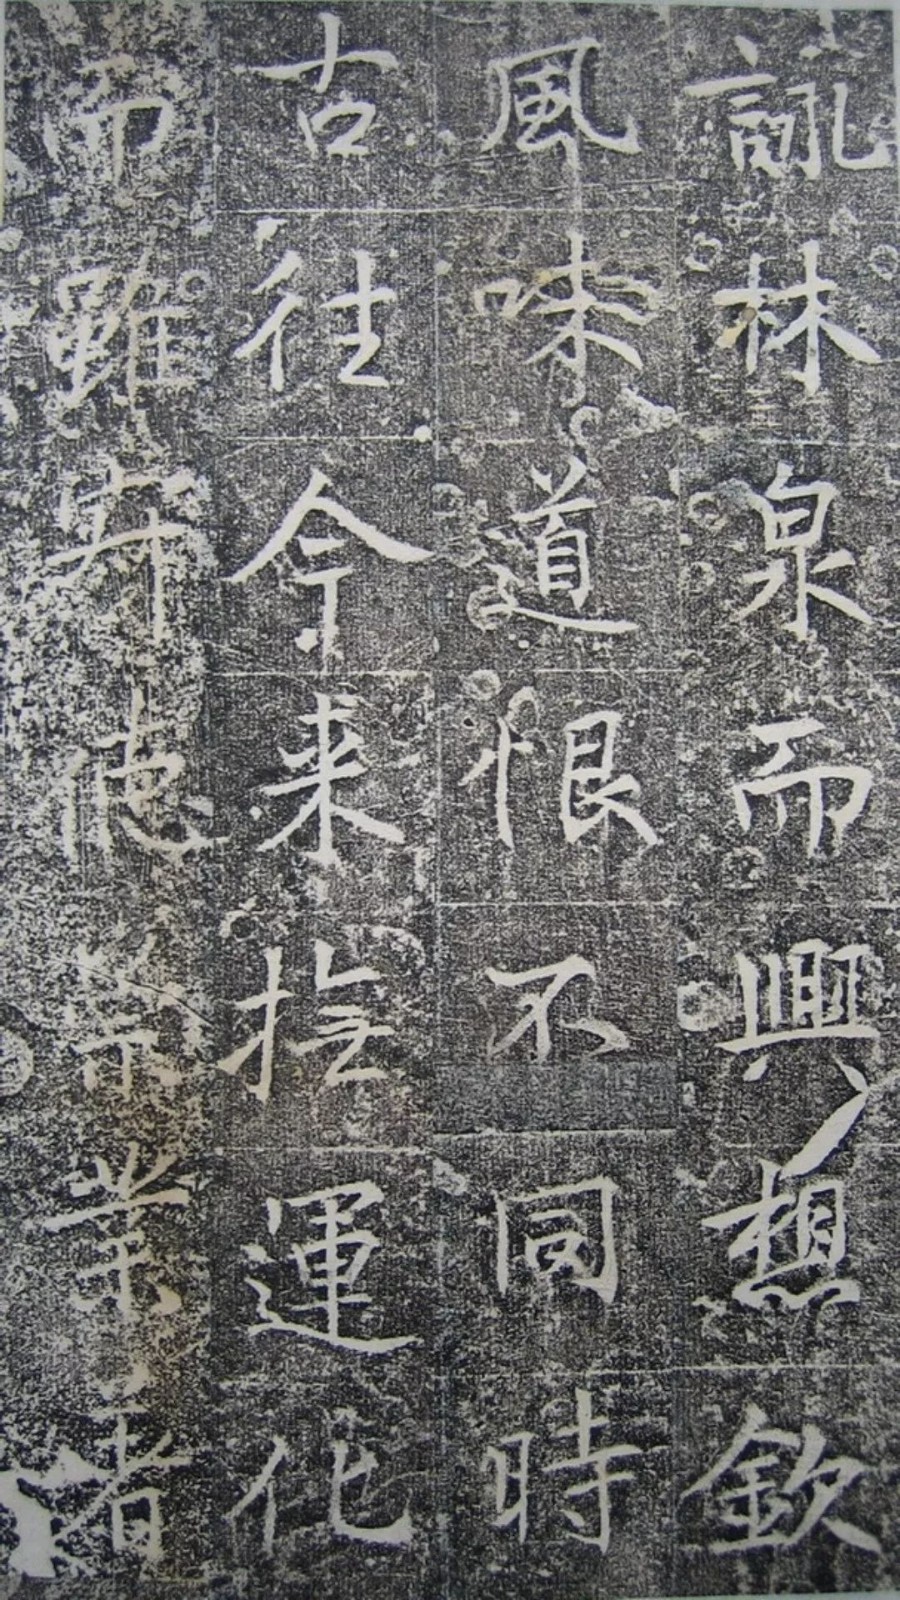 詠林泉而興想欽
風味道恨不同時
古往今来撫運化
而雖德崇業